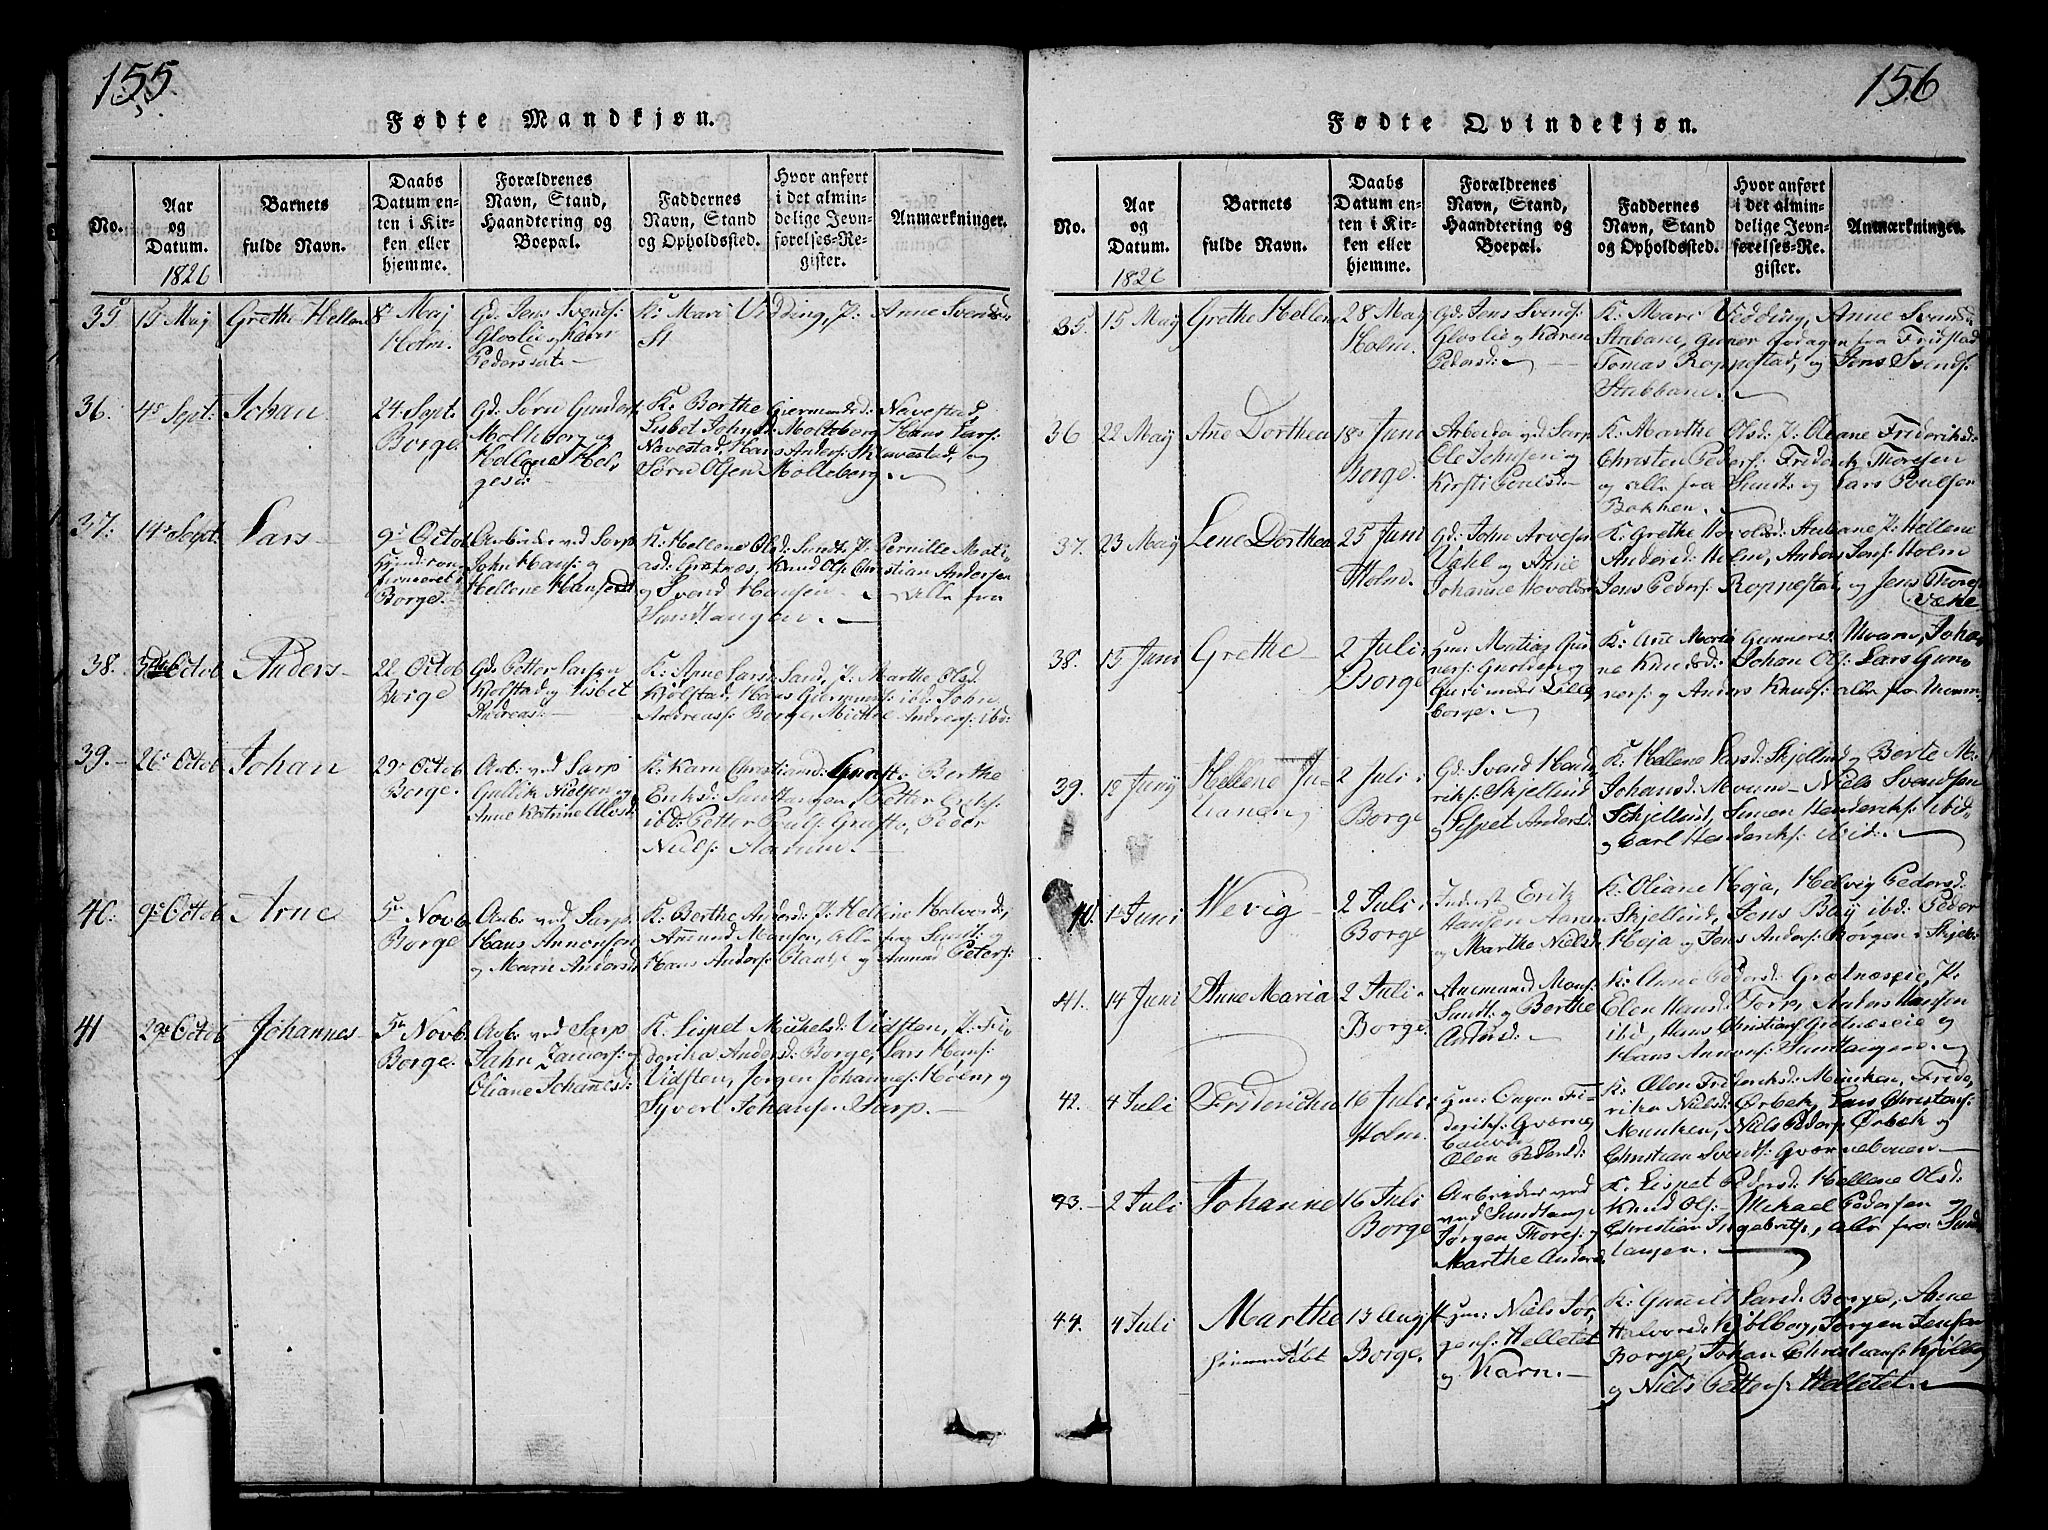 155
Fødte Mandkjøn.
No.
Aar
og
Datum.
1826
Barnets
fulde Navn.
Daabs
Datum en-
ten i Kir-
ken eller
hjemme.
Forældrenes
Navn, Stand,
Haandtering og
Boepæl.
Faddernes
Navn, Stand
og Opholdssted.
Hvor anført
i det almin-
delige Jevn-
førelses-Re-
gister.
Anmærkninger.
35 15 May Grethe Hellene 8 Maj
Holm.
Gd. Jens Svends:
Gloslie og Karn
Pedersdat
K: Mari Vidding, P: Anne Svendsd
St
36. 4de Sept: Johan
24 Sept.
Borge
Gd: Sørn Gunders:
Molleborg og
Hellene Hel
gesd:
K: Berthe Giermundsd: Navestad
Lisbet Johnsd: Molteberg Hans Lars:
Navestad, Hans Anders: Navestad, og
Sørn Olsen Molleborg.
37: 14 Sept. Lars
9 Octob
Borge.
Arbeider ved Sarp
John Hans: og
Hellene Hansdt
K: Hellene Olsd: Sundt, P: Pernille Mati
asd: Grotnes, Knud Ols: Christian Andersen
og Svend Hansen Alle fra
Sundtangen.
38. Octob Anders
22 Octob
Borge
Gd: Petter Larsen
Kolstad og Lisbet
Andreas:
K: Arne Larsn Sand, P: Marthe Olsd.
Kolstad, Hans Giermuns: ibd: John
Andreas: Borge, Mickel Andreas: ibd:
39. 26 Octob Johan
29 Octob
Borge.
Arb: ved Sarp
Gullik Nielsen og
Anne Katrine Olesd:
K: Karn Christiansd: Grafto Berthe
Eriksd: Sundtangen, Petter Eriks:
ibd: Petter Pouls: Grafto, Peder
Niels: Aarum.
40. 9 Octob Arne
5 Novb
Borge
Arb: ved Sarp.
Hans Arnensen
og Marie Andersd:
K: Berthe Andersd: P: Hellene Halvorsd;
Amund Mansen, Alle fra Sundt: og
Hans Anders: og Amund Peters:
41 29 Octob Johannes
5 Novb.
Borge.
Arb: ved Sarp
Oliane Johannesd:
K. Lispet Michelsd: Vidsten, P. Fri
derika Andersd: Borge, Lars Hans:
Vidsten, Jørgen Johannes: Holm, og
Syvert Johansen Sarp.
156
Fødte Qvindekjøn.
No.
Aar
og
Datum.
1826
Barnets
fulde Navn.
Daabs
Datum en-
ten i Kir-
ken eller
hjemme.
Forældrenes
Navn, Stand,
Haandtering og
Boepæl.
Faddernes
Navn, Stand
og Opholdssted.
Hvor anført
i det almin-
delige Jevn-
førelses-Re-
gister.
Anmærkninger.
35. 15 May Grethe Hellene
28 May
Holm.
Gd: Jens Svends:
Gloslie og Karen
Pedersd:
K: Mare Vedding, Anne Svendsd
Stabane, Guner fra Fridstad
Tomas Roppestad, og Jens Svends:
Stabbane.
36 22 May Ane Dorthea
18 Juni
Borge.
Arbeider ved Sarp
Ole Jensen og
Kirsti Poulsd
K: Marthe Olsd: P: Oleane Frideriksd:
Christen Peders: Friderik Thoresen
og alle fra Sundt: og Lars Poulsen
Bakken.
37. 23 May Lene Dorthea
25 Juni
Holm.
Gd: John Arvesen
Vahl og Anne
Johanne Hovoldsd
K: Grethe Stabane P: Hellene
Andersd: Holm, Anders Jens: Holm
Jens Peders: Roppestad, og Jens Thores:
Væke
38. 15 Juni Grethe
2 Juli
Borge
Hm: Matias Gun
ners: og
Guri under Lille
borge.
K: Ane Maria Gunnersd. Moum, Johan
ne Knudsd: Johan Ols: Lars Gun
ners: og Anders Knuds: alle fra Moum.
39. 12 Juny Hellene Ju
liane
2 Juli:
Borge
Gd: Svend Hend
riks: Skjellind
og Lispet Andersd.
K: Hellene Larsd: Skjellind, og Berte M:
Johansd: Moum Niels Svendsen
Skjellind, Simen Henderiks: ibid
og Carl Henderiks: ibid:
40. 1 Juni Hevig
2 Juli:
Borge
Inderst Erik
Hansen
og Marthe Nielsd
K: Oliane Høja, Helvig Pedersd:
Skjellind, Jens Baÿ ibd: Peder
Høja og Jens Anders: Borgen
41. 14 Juni Anne Maria
2 Juli
Borge
Anemund Mons:
Sandt: og Berthe
Andersd:
K: Anne Pedersd: Grotnæseie, P:
Elen Hansd: Torp, Anders Hansen
ibd, Hans Christians: Grotnæseie og
Hans Sundtangen.
42. 4 Juli Friderikke
16 Juli:
Holm.
Hm: Fri
deriks: Gværne
bauen
Olen Pedersd:
K: Olen Frideriksd: Munken, Fride
rika Nielsd: Ørbek, Lars Christens:
Munken, Niels Peders: Ørbæk og
Christian Svends: Gværnebauen
43. 2 Juli Johanne
16 Juli
Borge
Arbeider ved
ved Sundtang:
Jørgen Thores: og
Marthe Andersd
K. Lispet Pedersd: Hellene Olsd:
Knud Ols: Mikael Pedersen og
Christian Ingebrits:, alle fra Sund
tangen.
44. 4 Juli Marthe
hiemmedøbt
13 Augst
Borge.
Hm: Niels Jør
gens: Helletet
og Karn.
K: Gunnild Larsd: Borge, Anne
Halvorsd: Kjølberg, Jørgen Jensen
Borge, Johan Christians: Kjølberg
og Niels Petters: Helletet.